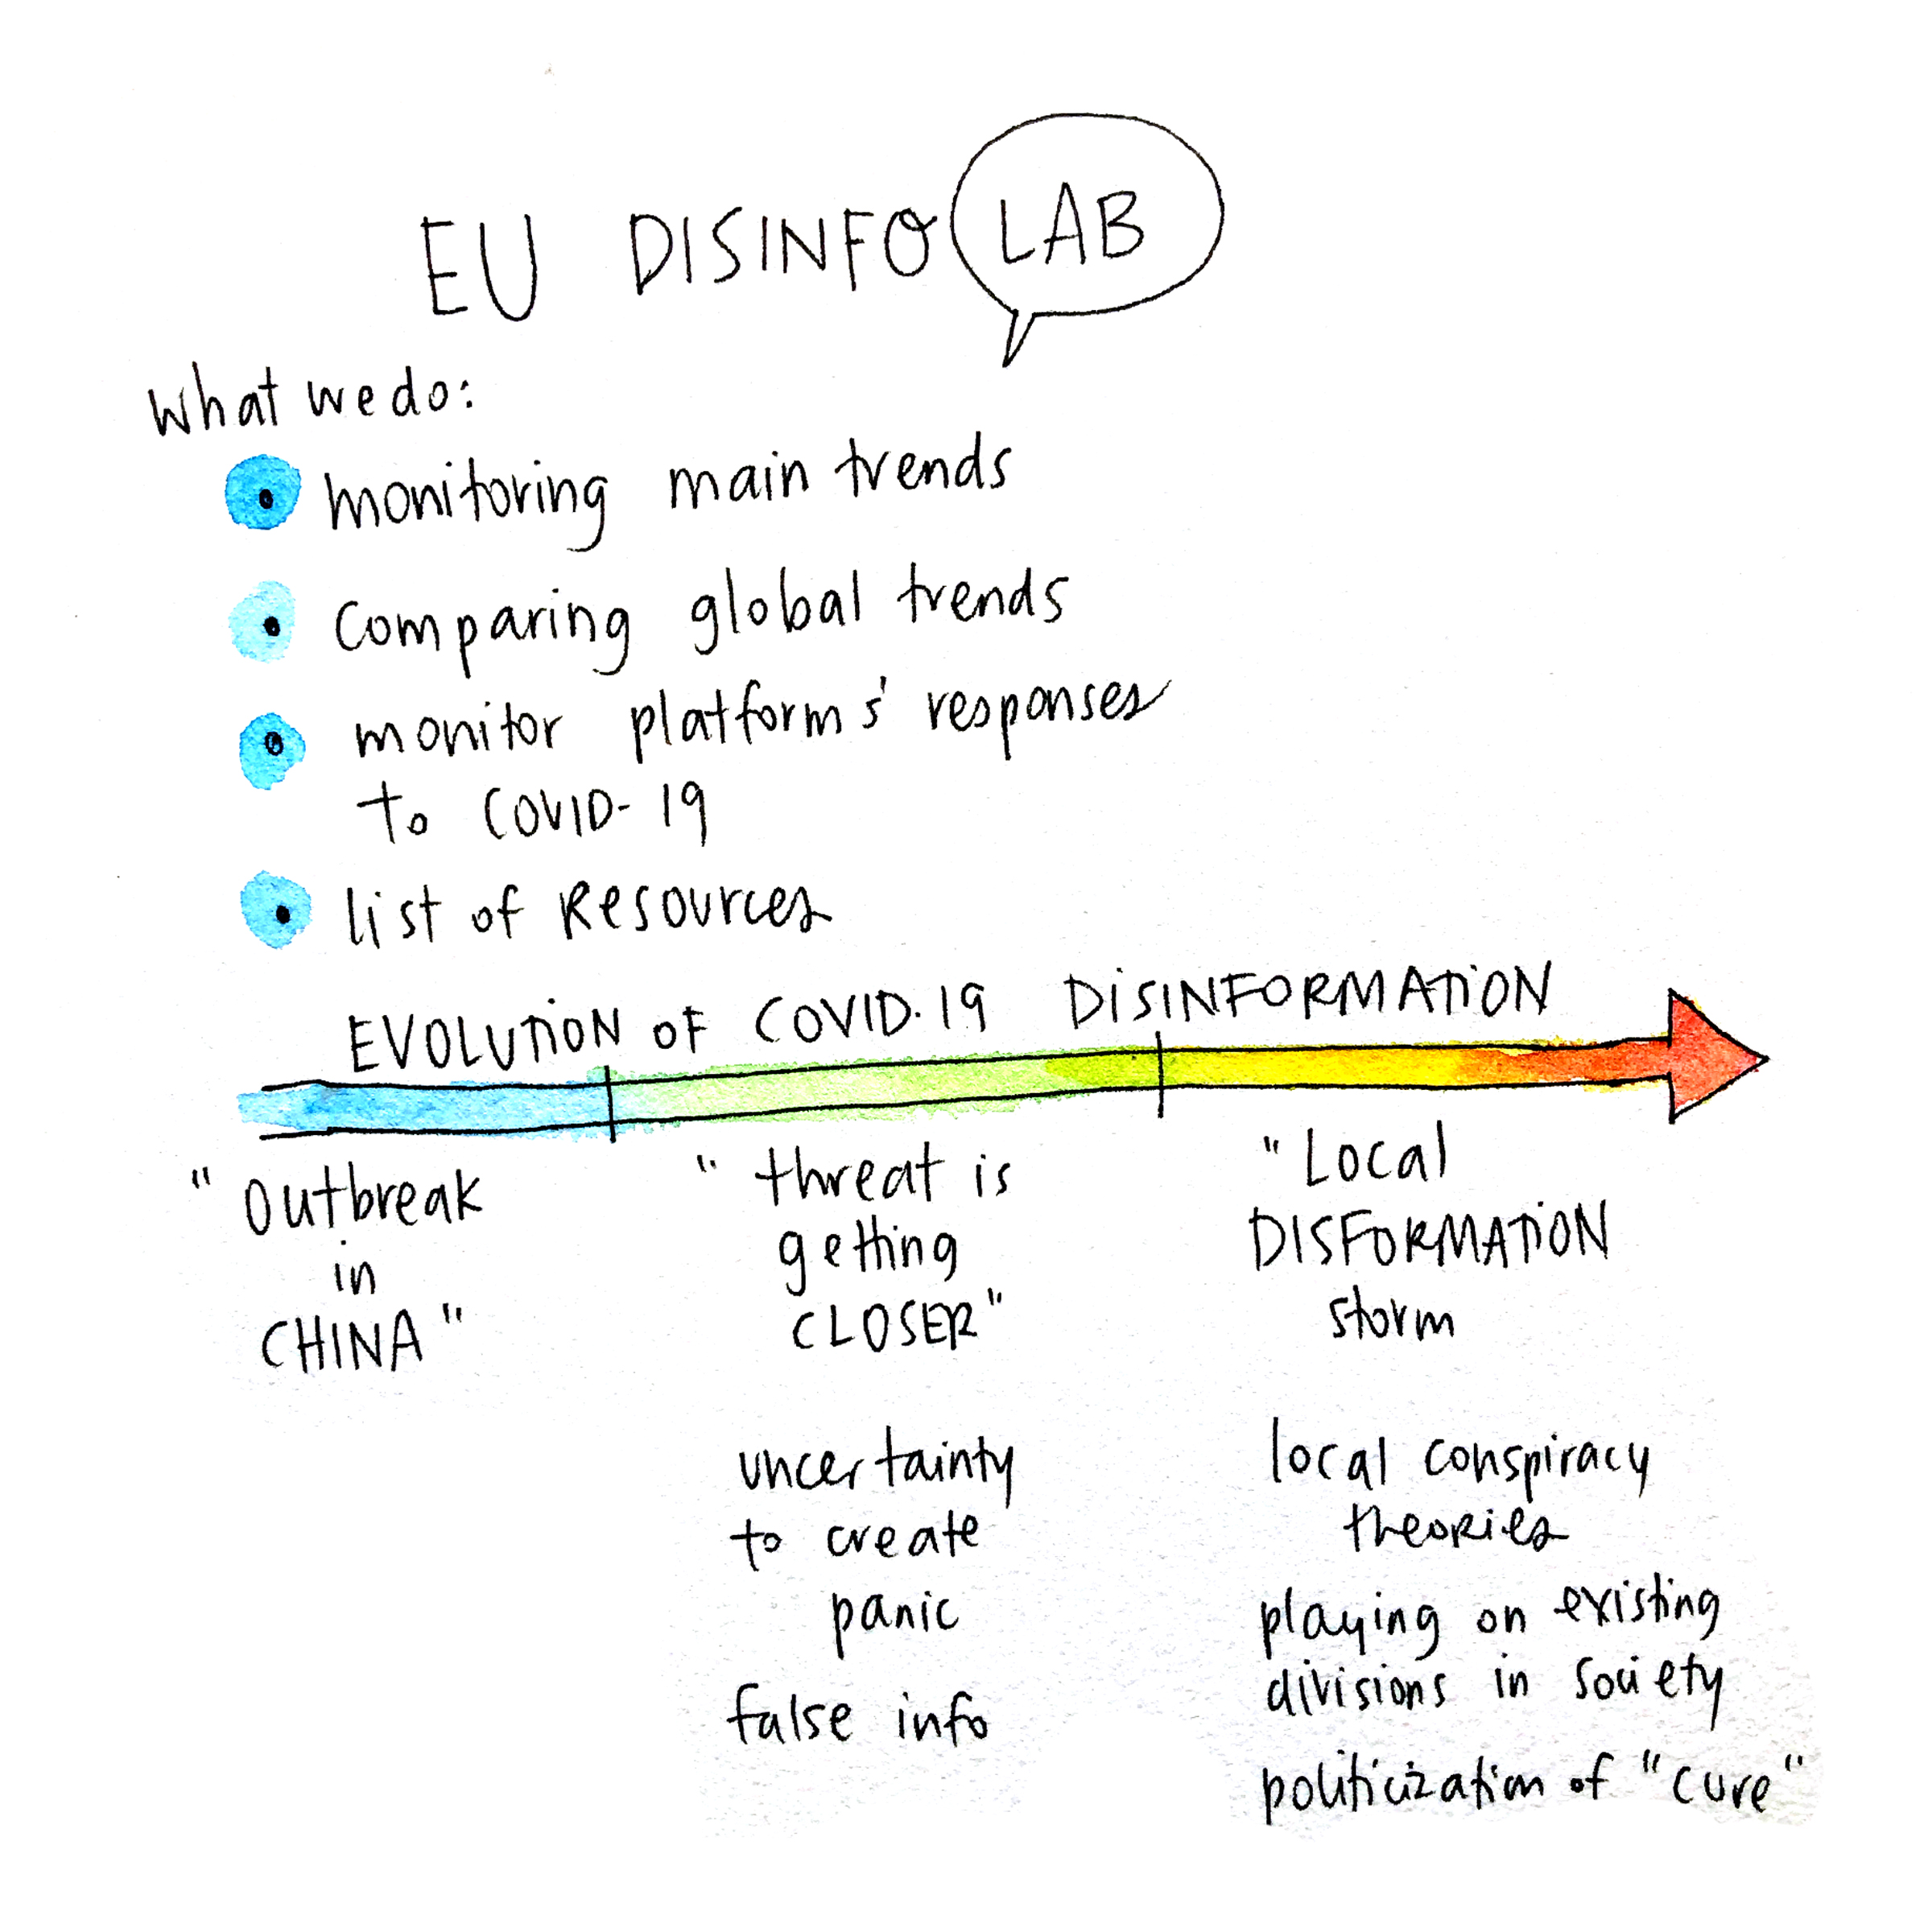 EU DISINFO LAB
What we do:
monitoring main trends
comparing global trends
monitor platforms' responses
to COVID-19
list of Resources
EVOLUTION OF COVID.19 DISINFORMATION
"Outbreak
in
CHINA"
"threat is
getting
CLOSER"
uncertainty
to create
panic
false info
"Local
DISFORMATION
storm
local conspiracy
theories
playing on existing
divisions in society
politicization of "cure"